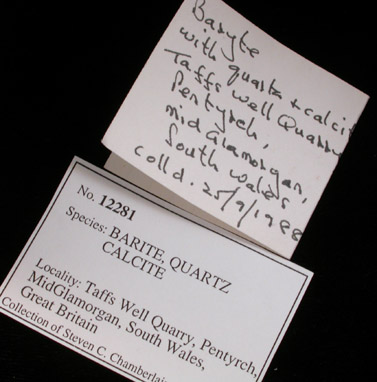 Baryte
with quartz + calci
Taffs Well Quarry
Pentyrch,
mid Glamorgan,
South Wales
colld. 25/9/1988
No. 12281
Species: BARITE, QUARTZ
CALCITE
Locality: Taffs Well Quarry, Pentyrch,
MidGlamorgan, South Wales,
Great Britain
Collection of Steven C. Chamberlai